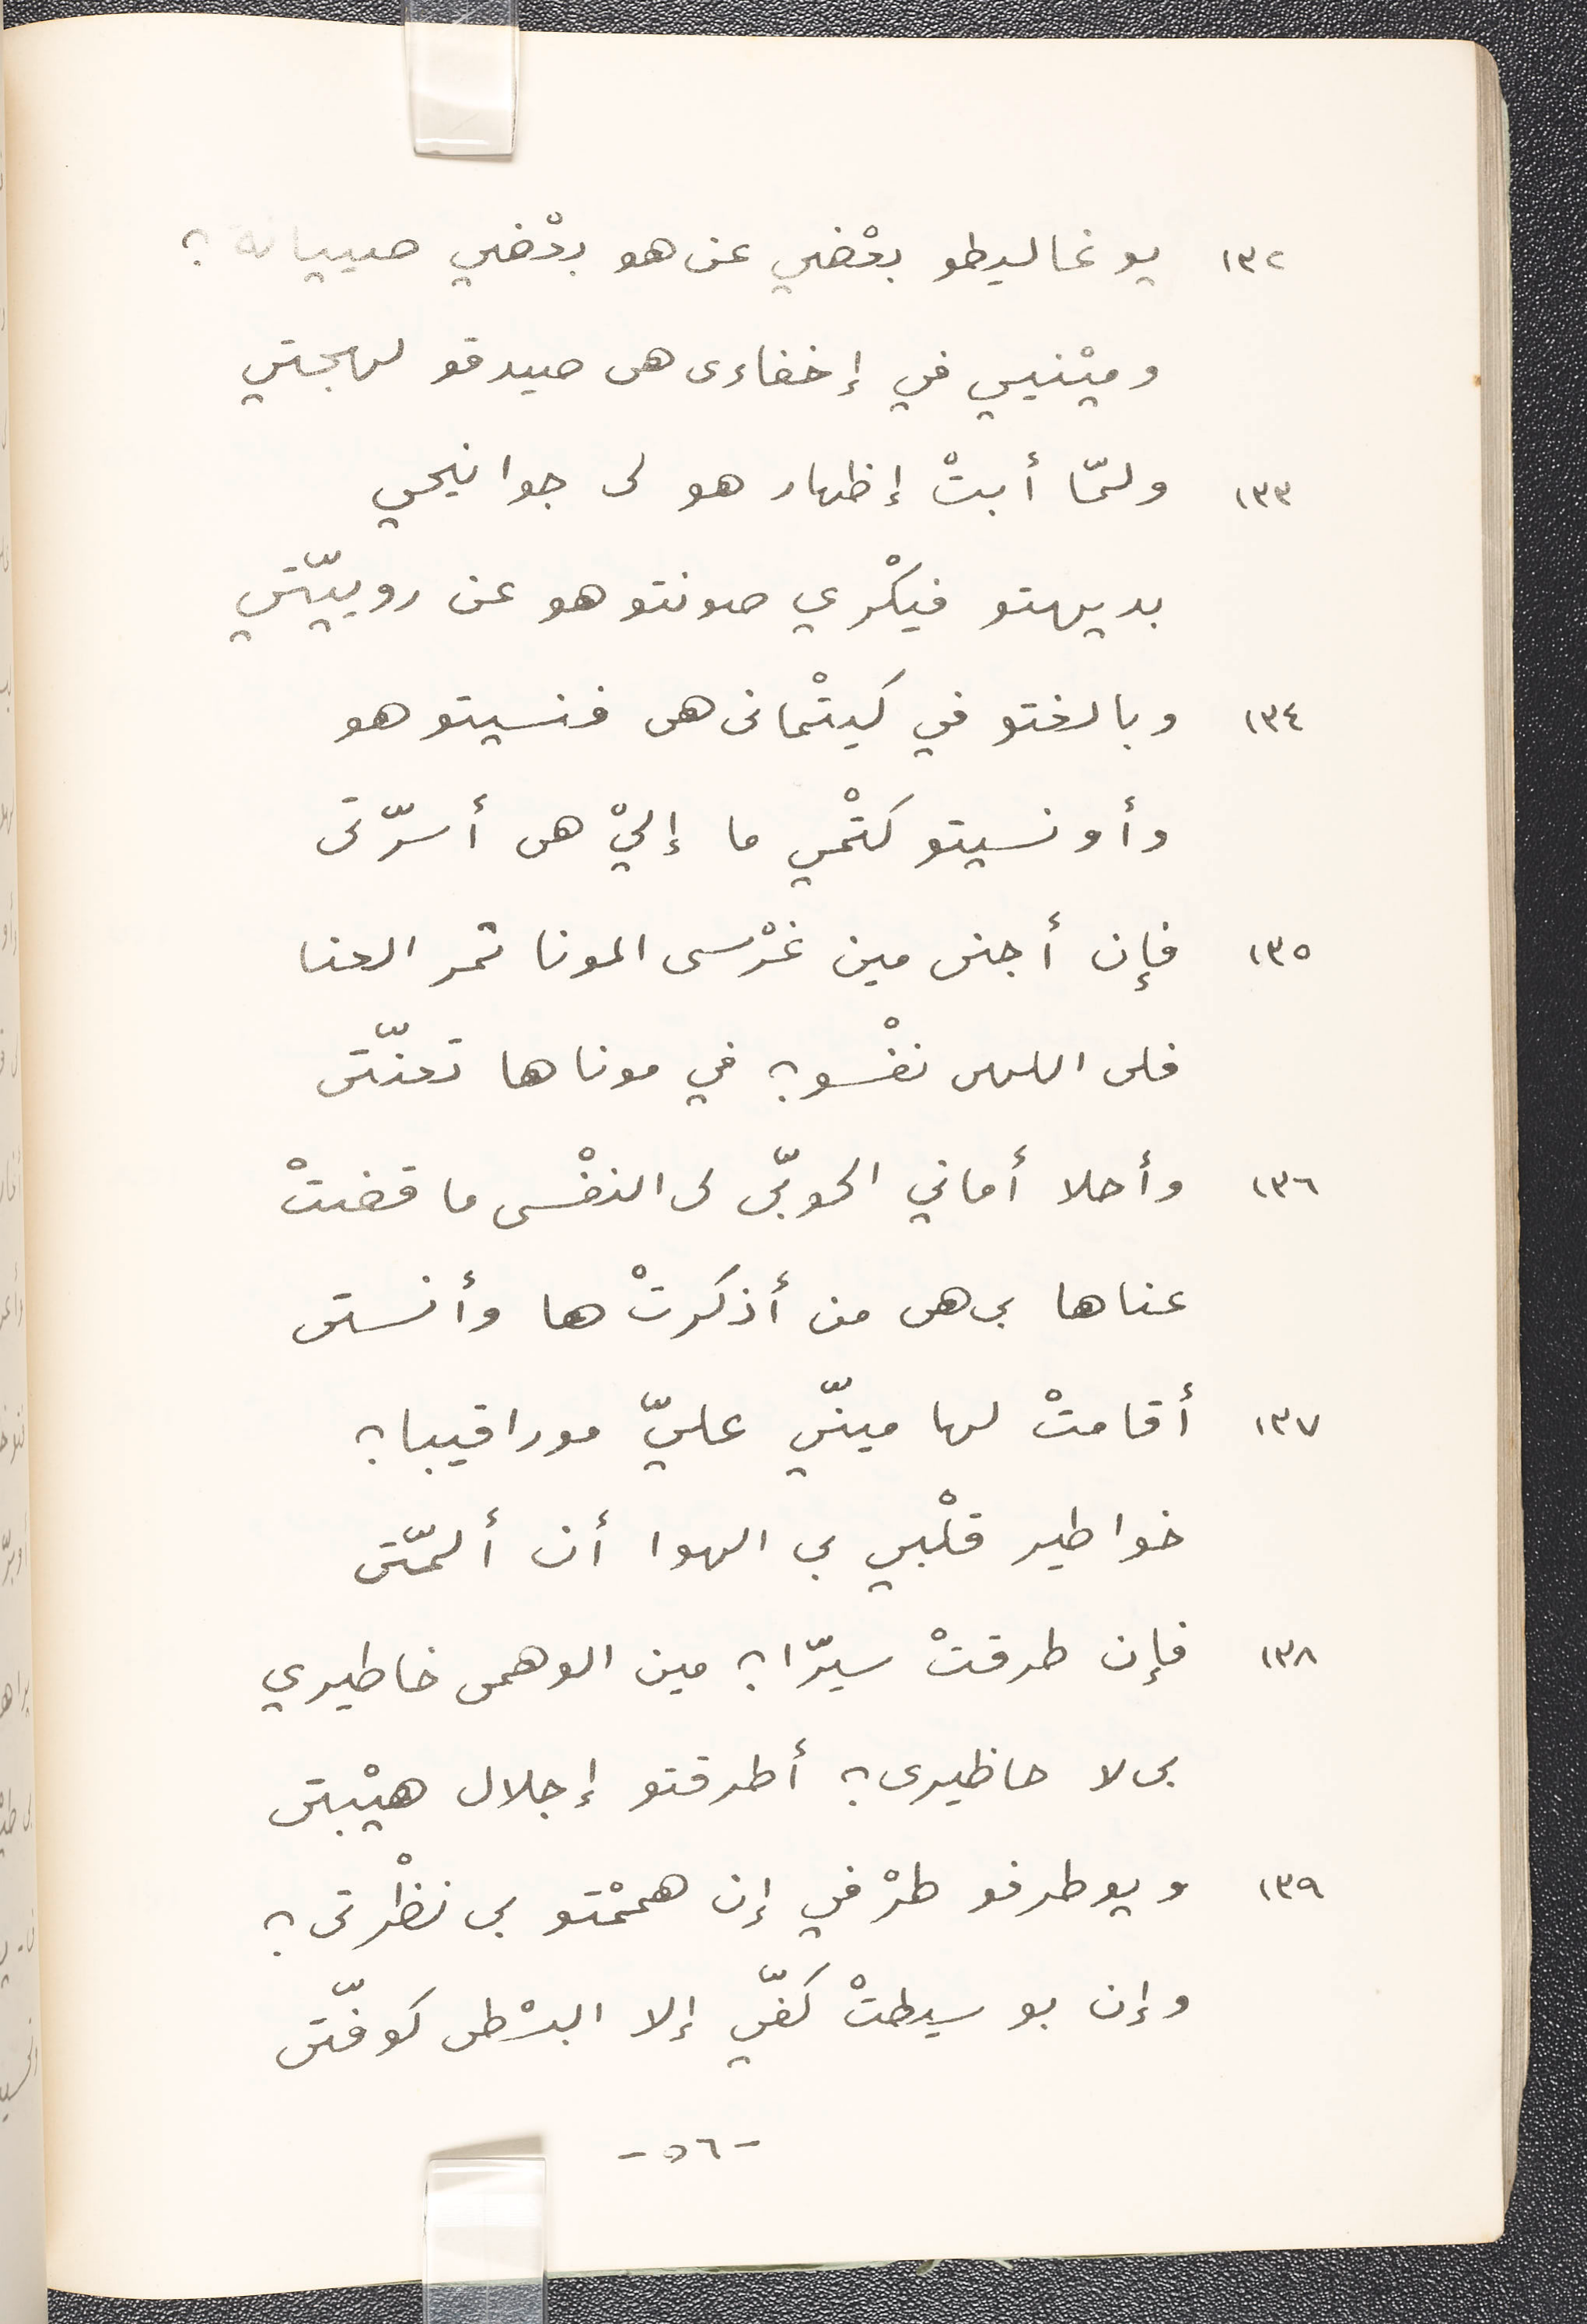 ١٣٢ يوغاليطو بعْضي عن هو بعْضي صييانة ؟
وميْنيي في إخفاءى هى صيدقو لهجتي
١٣٣ ولمّا أبتْ إظهار هو لى جوانيحي
بديهتو فيكْري صونتو هو عن روييّتي
١٣٤ وبالغتو في كيتْمانى هى فنسيتو هو
وأونسيتو كتْمي ما إليْ هى أسرّتى
١٣٥ فإن أجنى مين غرْسى المونا ثمر العنا
فلى اللهى نفْسو؟ في موناها تعنّتى
١٣٦ وأحلا أماني الحوبّى لى النفْسى ما قضتْ
عناها بى هى من أذكرتْ ها وأنستى
١٣٧ أقامتْ لها مينّي عليّ موراقيبا؟
خواطير قلْبي بى الهوا أن ألمّتى
١٣٨ فإن طرقتْ سيرّا؟ مين الوهمى خاطيري
بى لا حاظيرى؟ أطرقتو إجلال هيْبتى
١٣٩ ويوطرفو طرْفي إن هممْتو بى نظْرتى؟
وإن بوسيطتْ كفّي إلا البسْطى كوفّتى
-٥٦-